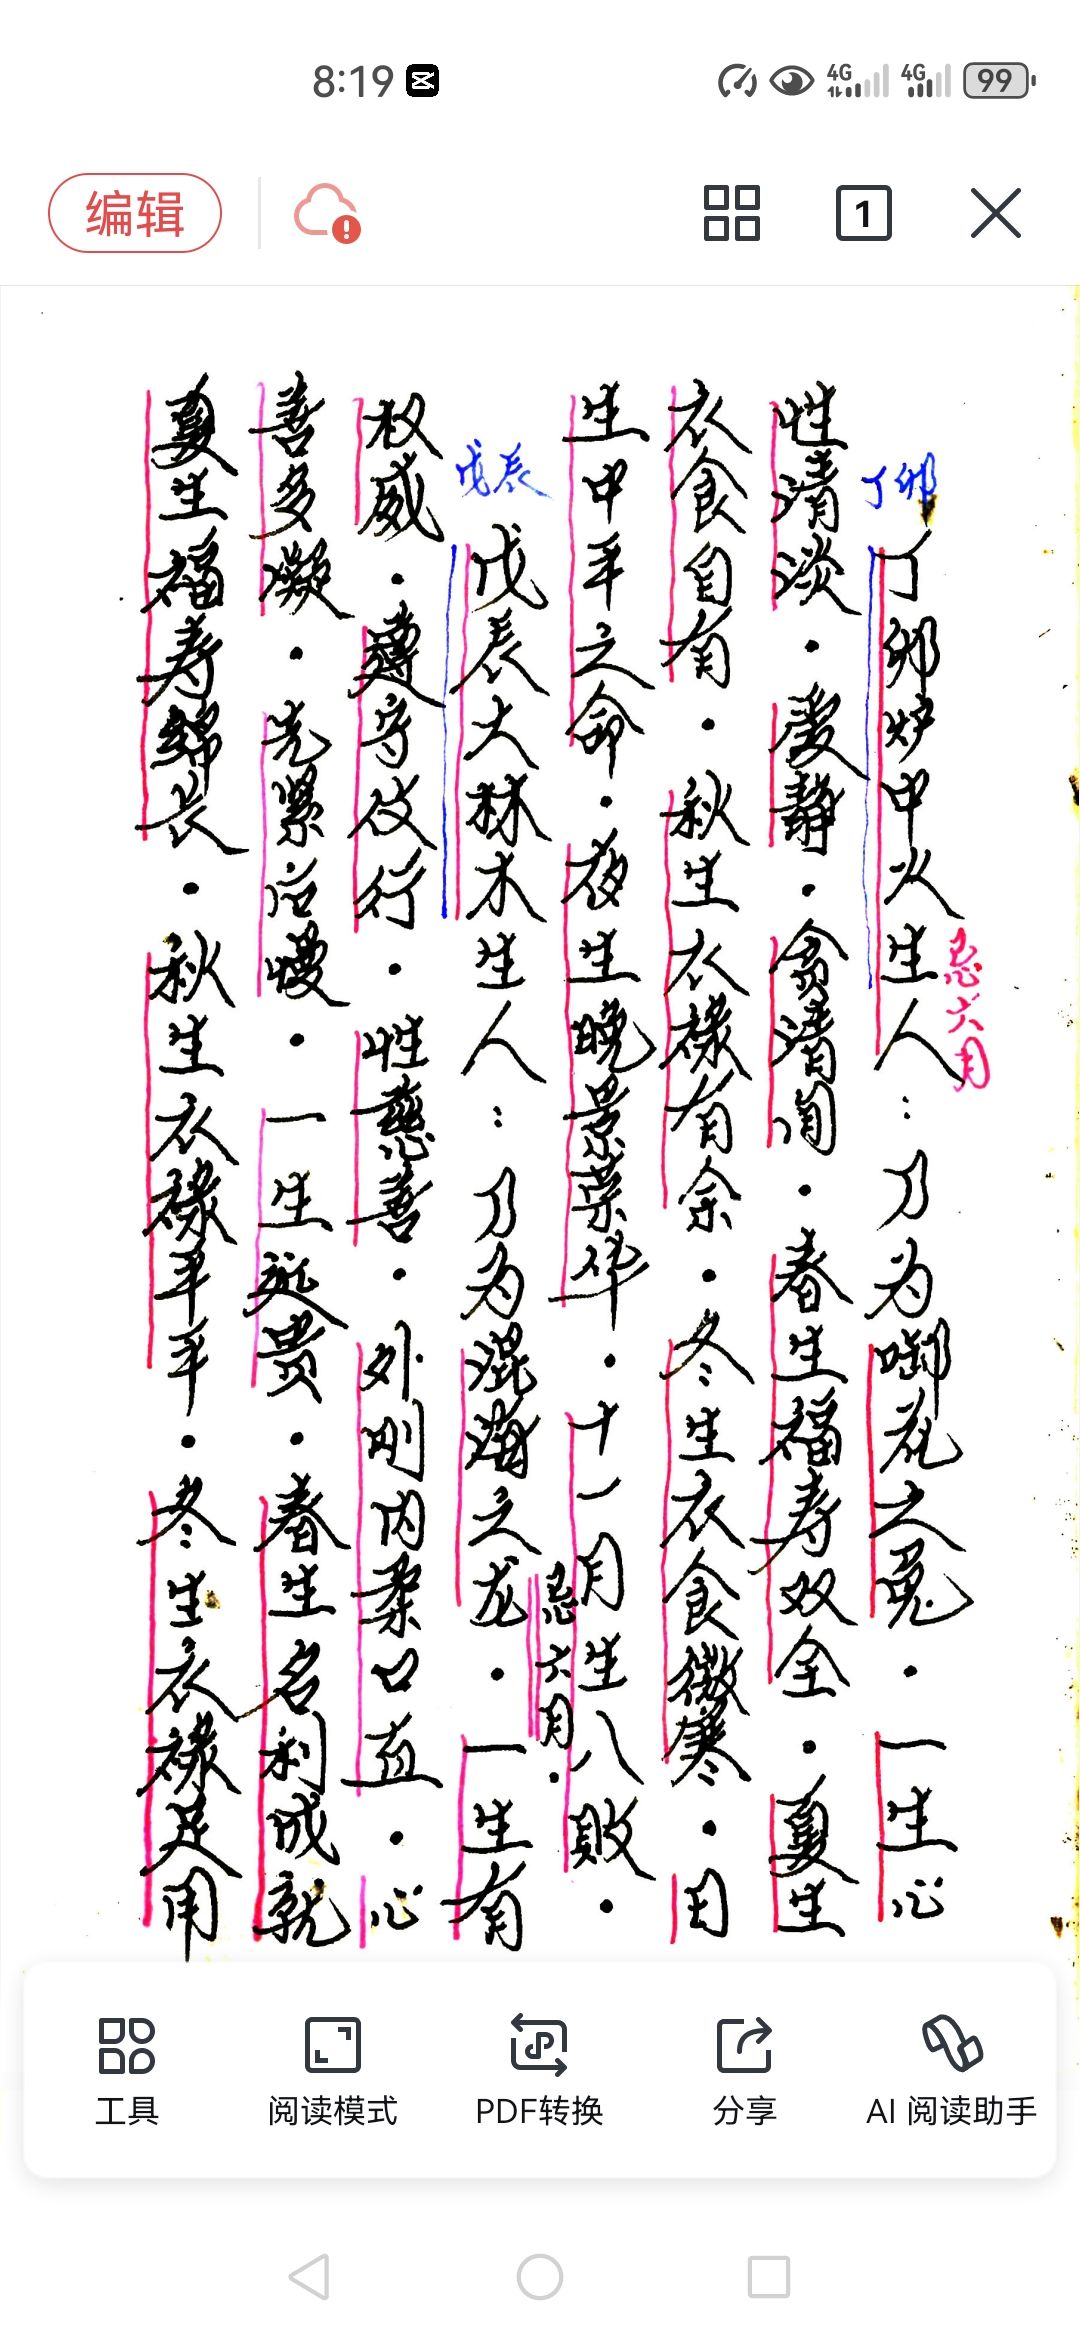 8:19
4G
4G
99
编辑
1
丁卯
丁卯炉中火生人：乃为啣花之兔．一生心
忌六月
性清淡．爱静．贪清闲．春生福寿双全．夏生
衣食自有．秋生衣禄有余．冬生衣食微寒．日
生中平之命．夜生晚景荣华．十一月生人败．
忌六月．
戊辰
戊辰大林木生人：乃为混海之龙．一生有
权威．遵守仪行．性慈善．外刚内柔口直．心
善多凝．先紧后慢．一生近贵．春生名利成就
夏生福寿绵长．秋生衣禄平平．冬生衣禄足用
工具
阅读模式
PDF转换
分享
AI 阅读助手